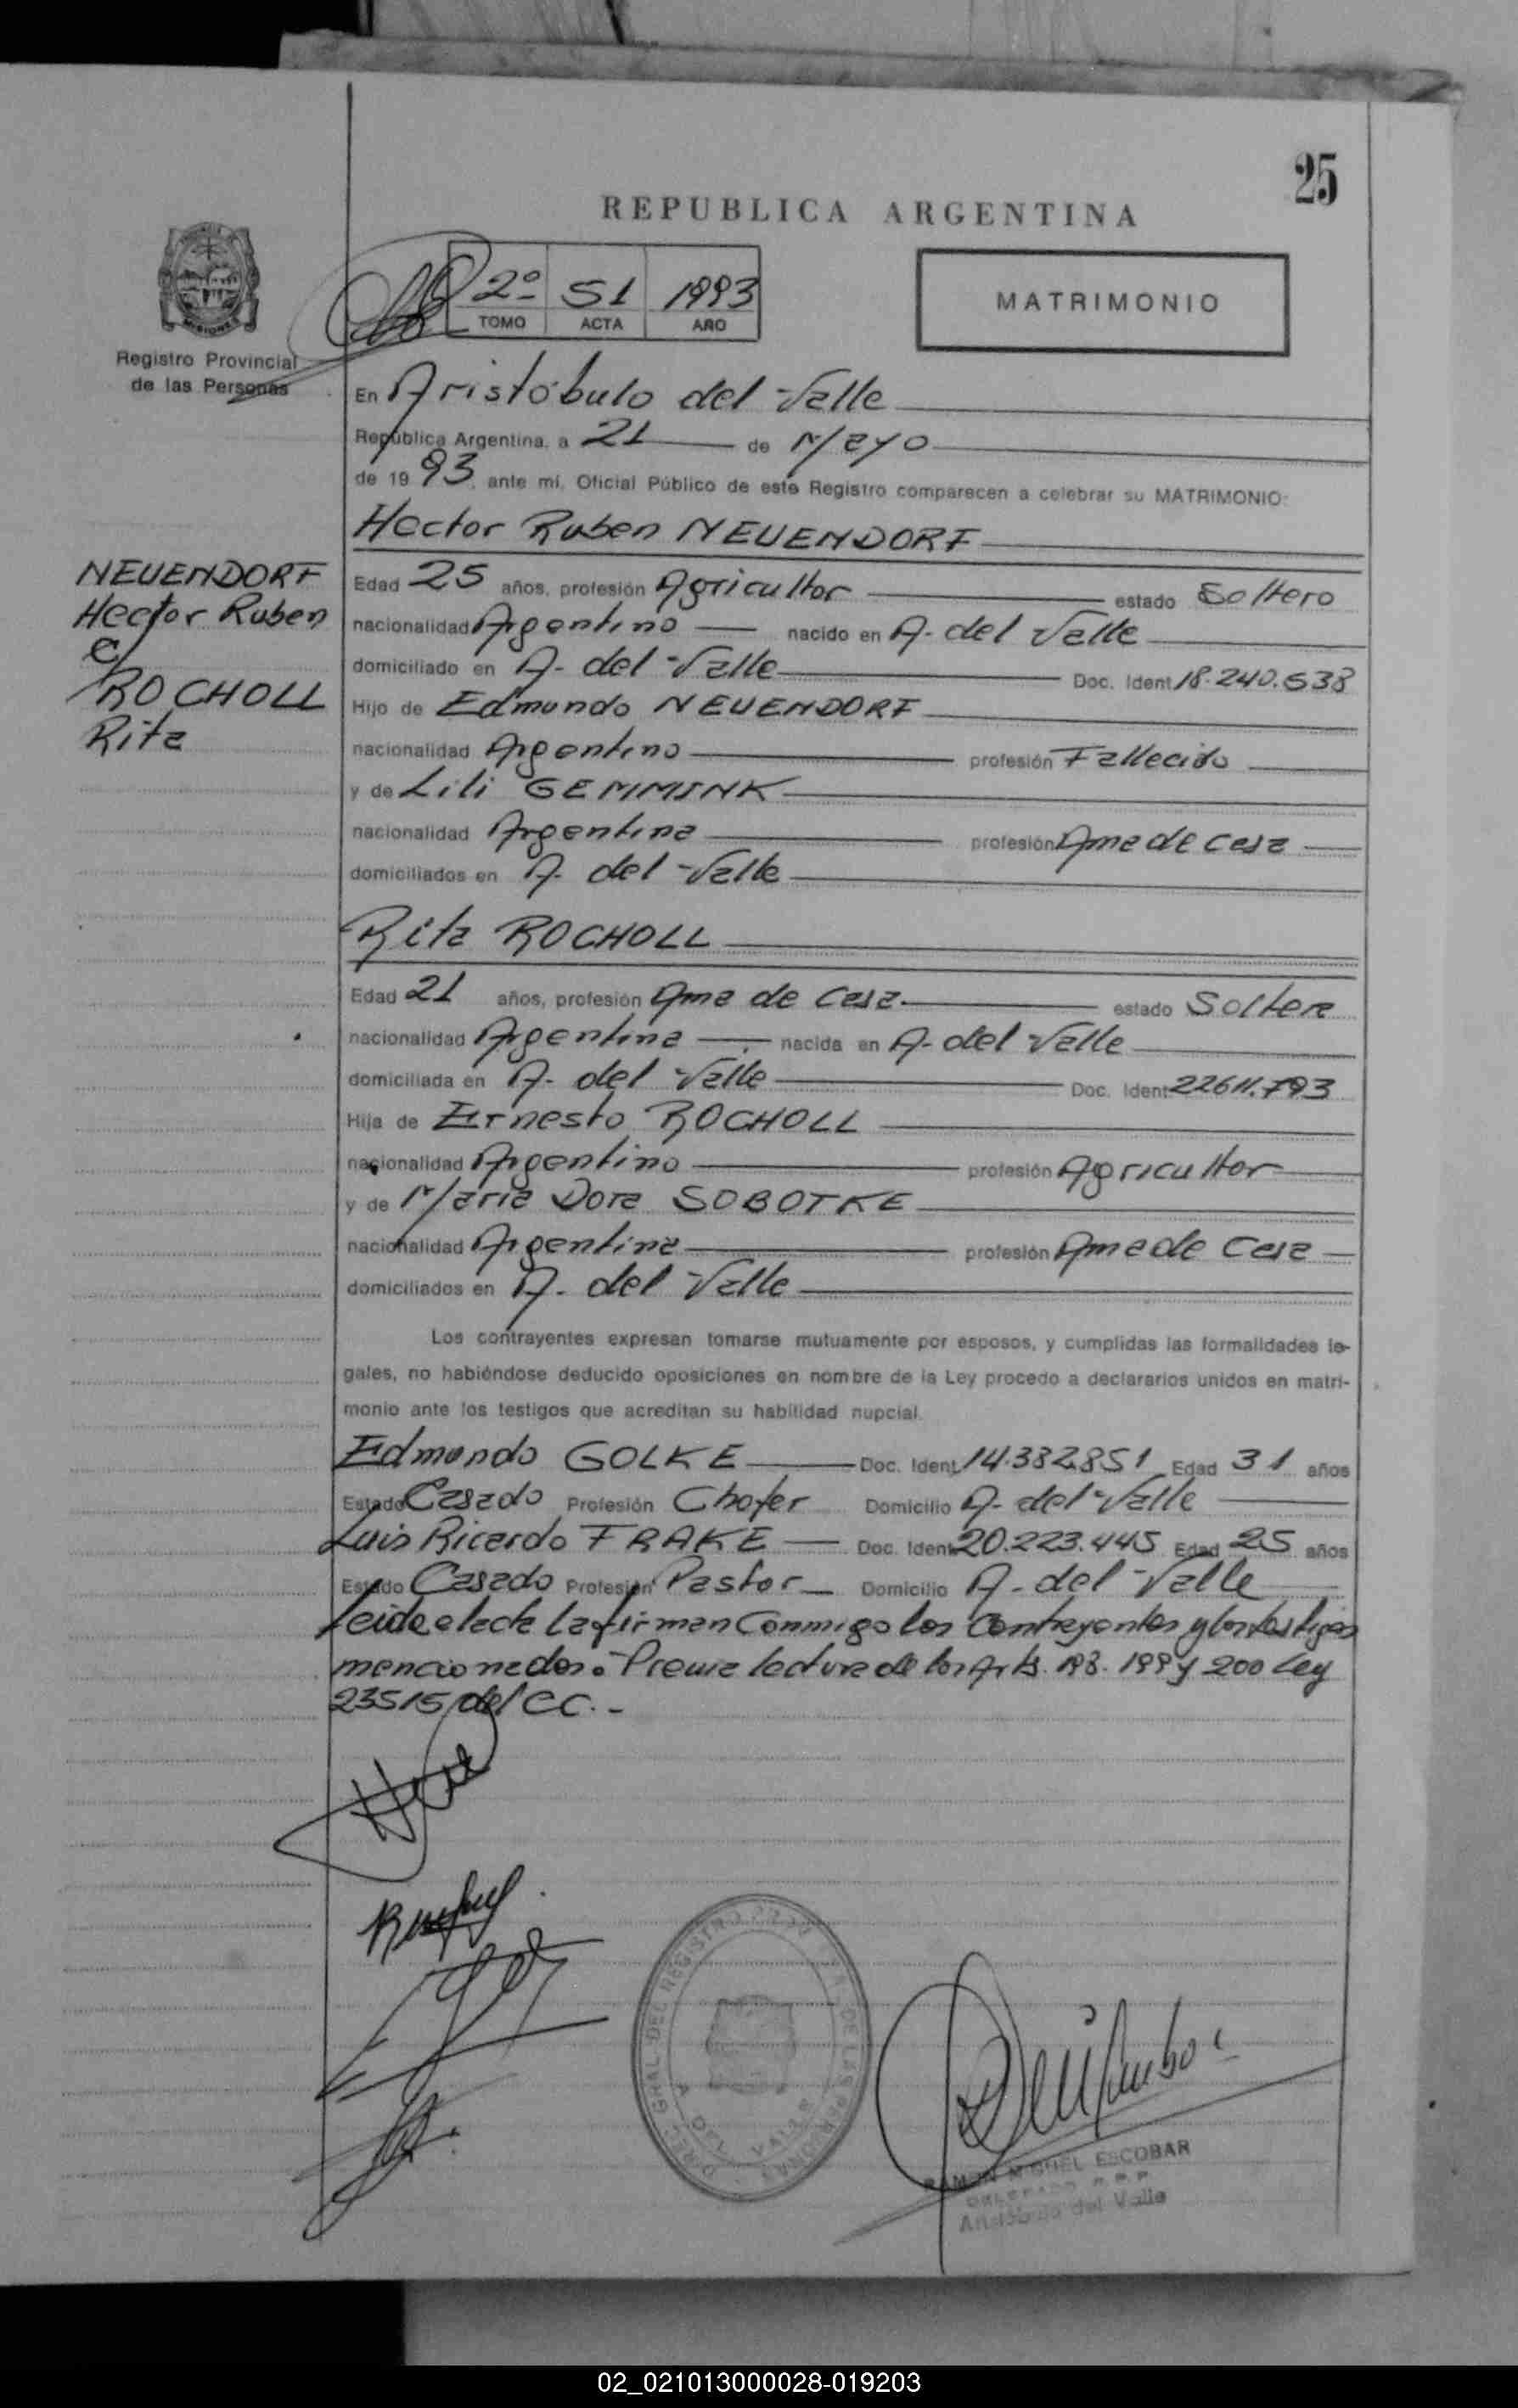 25
REPUBLICA ARGENTINA
2º 51 1993
TOMO ACTA AÑO
MATRIMONIO
MISIONES
Registro Provincial
de las Personas
En Aristóbulo del Valle
República Argentina, a 21 de Mayo
de 1993, ante mí, Oficial Público de este Registro comparecen a celebrar su MATRIMONIO:
Hector Ruben NEUENDORF
NEUENDORF
Hector Ruben
c/
ROCHOLL
Rita
Edad 25 años, profesión Agricultor estado Soltero
nacionalidad Argentino nacido en A. del Valle
domiciliado en A. del Valle Doc. Ident. 18.240.638
Hijo de Edmundo NEUENDORF
nacionalidad Argentino profesión Fallecido
y de Lili GEMMINK
nacionalidad Argentina profesión Ama de casa
domiciliados en A. del Valle
Rita ROCHOLL
Edad 21 años, profesión Ama de Casa. estado Soltera
nacionalidad Argentina nacida en A. del Valle
domiciliada en A. del Valle Doc. Ident. 22611.793
Hija de Ernesto ROCHOLL
nacionalidad Argentino profesión Agricultor
y de Maria Dora SOBOTKE
nacionalidad Argentina profesión Ama de Casa
domiciliados en A. del Valle
Los contrayentes expresan tomarse mutuamente por esposos, y cumplidas las formalidades le-
gales, no habiéndose deducido oposiciones en nombre de la Ley procedo a declararlos unidos en matri-
monio ante los testigos que acreditan su habilidad nupcial.
Edmundo GOLKE Doc. Ident. 14.382.851 Edad 31 años
Estado Casado Profesión Chofer Domicilio A. del Valle
Luis Ricardo FRAKE Doc. Ident. 20.223.445 Edad 25 años
Estado Casado Profesión Pastor Domicilio A. del Valle
Leida el acta la firman Conmigo los Contrayentes y los testigos
mencionados. Previa lectura de los Arts. 198. 199 y 200 Ley
23515 del CC.-
DEL REGISTRO DE LAS PERSONAS
A DEL VALLE
RAMON MIGUEL ESCOBAR
DELEGADO R.P.P.
Aristóbulo del Valle
02_021013000028-019203